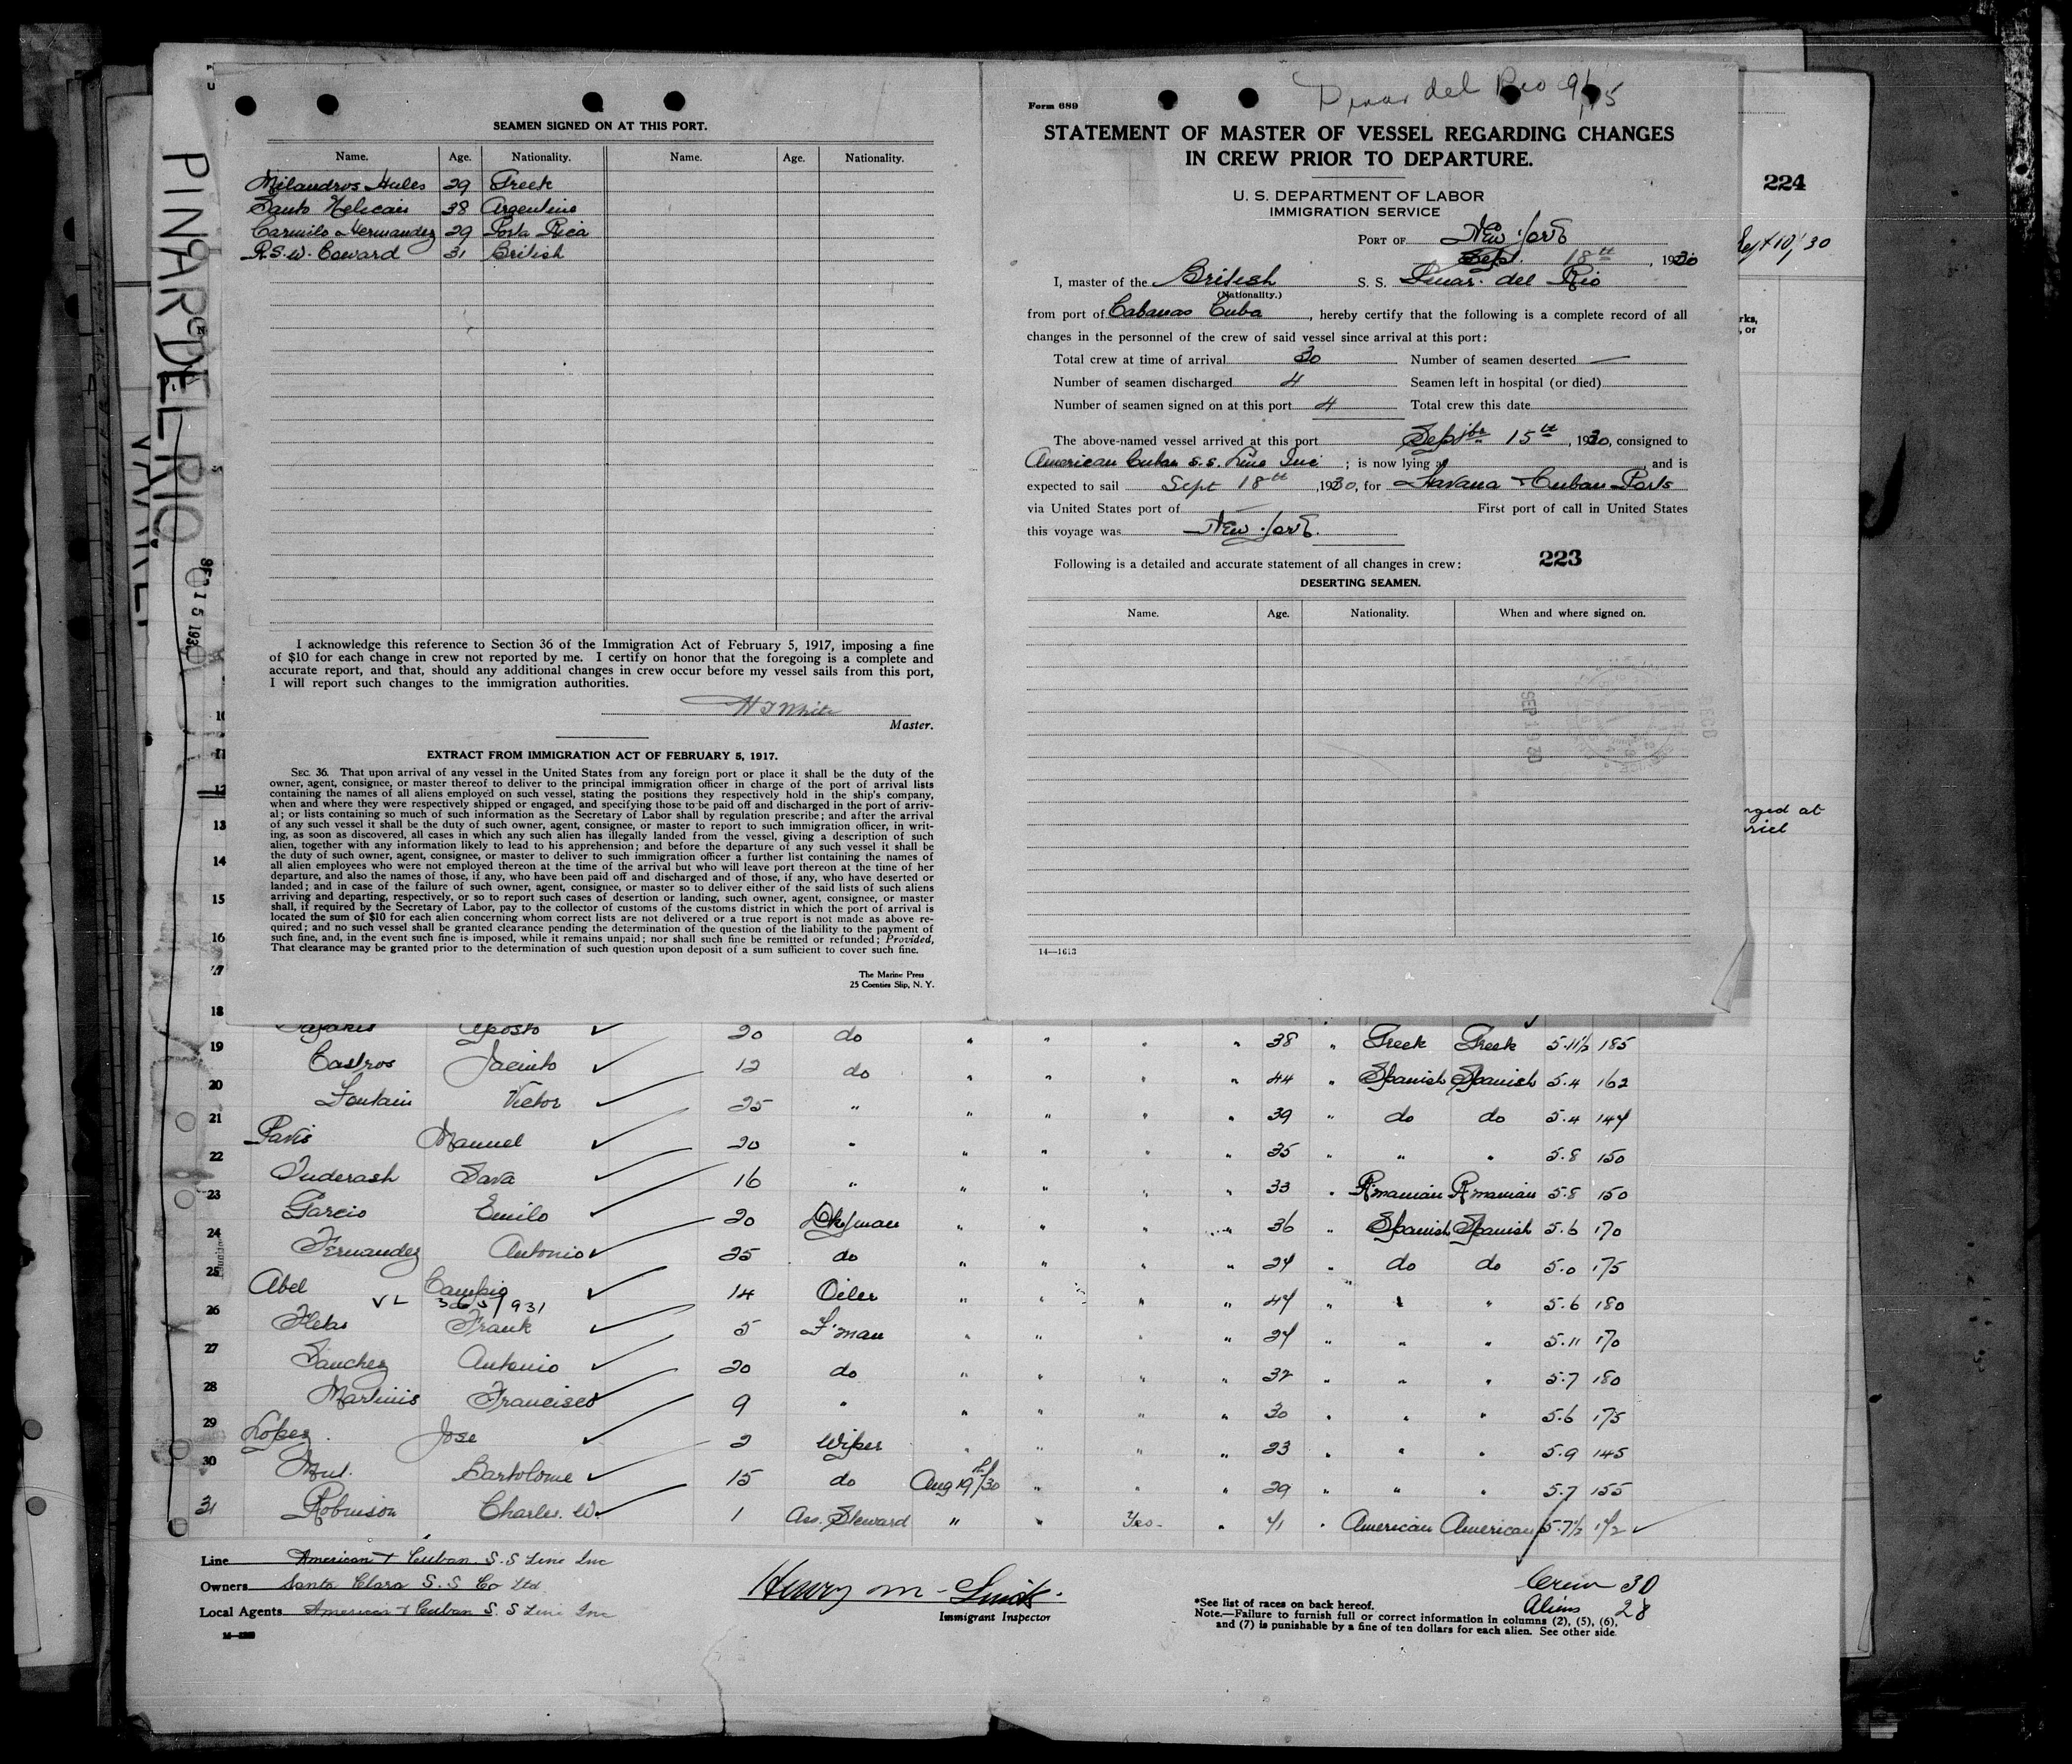 PINAR DEL RIO
SEP 15 1930
SEAMEN SIGNED ON AT THIS PORT.
Name. Age. Nationality. Name. Age. Nationality.
Milandros Hules 29 Greek
Santo 38 Argentine
Carmilo Hernandez 29 Costa Rica
R.S.W. Coward 31 British
I acknowledge this reference to Section 36 of the Immigration Act of February 5, 1917, imposing a fine
of $10 for each change in crew not reported by me. I certify on honor that the foregoing is a complete and
accurate report, and that, should any additional changes in crew occur before my vessel sails from this port,
I will report such changes to the immigration authorities.
H J White
Master.
EXTRACT FROM IMMIGRATION ACT OF FEBRUARY 5, 1917.
SEC. 36. That upon arrival of any vessel in the United States from any foreign port or place it shall be the duty of the
owner, agent, consignee, or master thereof to deliver to the principal immigration officer in charge of the port of arrival lists
containing the names of all aliens employed on such vessel, stating the positions they respectively hold in the ship's company,
when and where they were respectively shipped or engaged, and specifying those to be paid off and discharged in the port of arriv-
al; or lists containing so much of such information as the Secretary of Labor shall by regulation prescribe; and after the arrival
of any such vessel it shall be the duty of such owner, agent, consignee, or master to report to such immigration officer, in writ-
ing, as soon as discovered, all cases in which any such alien has illegally landed from the vessel, giving a description of such
alien, together with any information likely to lead to his apprehension; and before the departure of any such vessel it shall be
the duty of such owner, agent, consignee, or master to deliver to such immigration officer a further list containing the names of
all alien employees who were not employed thereon at the time of the arrival but who will leave port thereon at the time of her
departure, and also the names of those, if any, who have been paid off and discharged and of those, if any, who have deserted or
landed; and in case of the failure of such owner, agent, consignee, or master so to deliver either of the said lists of such aliens
arriving and departing, respectively, or so to report such cases of desertion or landing, such owner, agent, consignee, or master
shall, if required by the Secretary of Labor, pay to the collector of customs of the customs district in which the port of arrival is
located the sum of $10 for each alien concerning whom correct lists are not delivered or a true report is not made as above re-
quired; and no such vessel shall be granted clearance pending the determination of the question of the liability to the payment of
such fine, and, in the event such fine is imposed, while it remains unpaid; nor shall such fine be remitted or refunded; Provided,
That clearance may be granted prior to the determination of such question upon deposit of a sum sufficient to cover such fine.
The Marine Press
25 Coenties Slip, N. Y.
Pinar del Rio 9/15
Form 689
STATEMENT OF MASTER OF VESSEL REGARDING CHANGES
IN CREW PRIOR TO DEPARTURE.
U. S. DEPARTMENT OF LABOR
IMMIGRATION SERVICE
PORT OF New York
Sept. 18th, 1930
I, master of the British S. S. Pinar del Rio
(Nationality.)
from port of Cabanas Cuba, hereby certify that the following is a complete record of all
changes in the personnel of the crew of said vessel since arrival at this port:
Total crew at time of arrival 30 Number of seamen deserted —
Number of seamen discharged 4 Seamen left in hospital (or died)
Number of seamen signed on at this port 4 Total crew this date
The above-named vessel arrived at this port Septbr 15th, 1930, consigned to
American Cuban S.S. Line Inc; is now lying at and is
expected to sail Sept 18th, 1930, for Havana & Cuban Ports
via United States port of First port of call in United States
this voyage was New York.
Following is a detailed and accurate statement of all changes in crew: 223
DESERTING SEAMEN.
Name. Age. Nationality. When and where signed on.
SEP 19 30
RECD
14—1613
224
Sept 10/30
rks,
, or
nged at
ariel
10
11
12
13
14
15
16
17
18
19 Aposto 20 do " " " " 38 " Greek Greek 5.11½ 185
20 Castros Jacinto 12 do " " " " 44 " Spanish Spanish 5.4 162
21 Fontain Victor 25 " " " " " 39 " do do 5.4 144
22 Pavis Manuel 20 " " " " " 35 " " " 5.8 150
23 Tuderash Sava 16 " " " " " 33 " R'manian R'manian 5.8 150
24 Garcio Emilo 20 Dkyman " " " " 36 " Spanish Spanish 5.6 170
25 Fernandez Antonio 25 do " " " " 24 " do do 5.0 175
26 Abel Campio 14 Oiler " " " " 44 " " " 5.6 180
VL 365/931
27 Frank 5 F'man " " " " 24 " " " 5.11 170
28 Sanchez Antonio 20 do " " " " 32 " " " 5.7 180
29 Martinis Francisco 9 " " " " " 30 " " " 5.6 175
30 Lopez Jose 2 Wiper " " " " 23 " " " 5.9 145
Bartolome 15 do Aug 19th/30 " " " 29 " " " 5.7 155
31 Robinson Charles. W. 1 Ass. Steward " " Yes " 41 " American American 5.7½ 142
Line American & Cuban S.S Line Inc
Owners Santa Clara S.S Co Ltd
Local Agents American & Cuban S.S Line Inc
Henry M. Smith
Immigrant Inspector
Crew 30
Aliens 28
*See list of races on back hereof.
Note.—Failure to furnish full or correct information in columns (2), (5), (6),
and (7) is punishable by a fine of ten dollars for each alien. See other side.